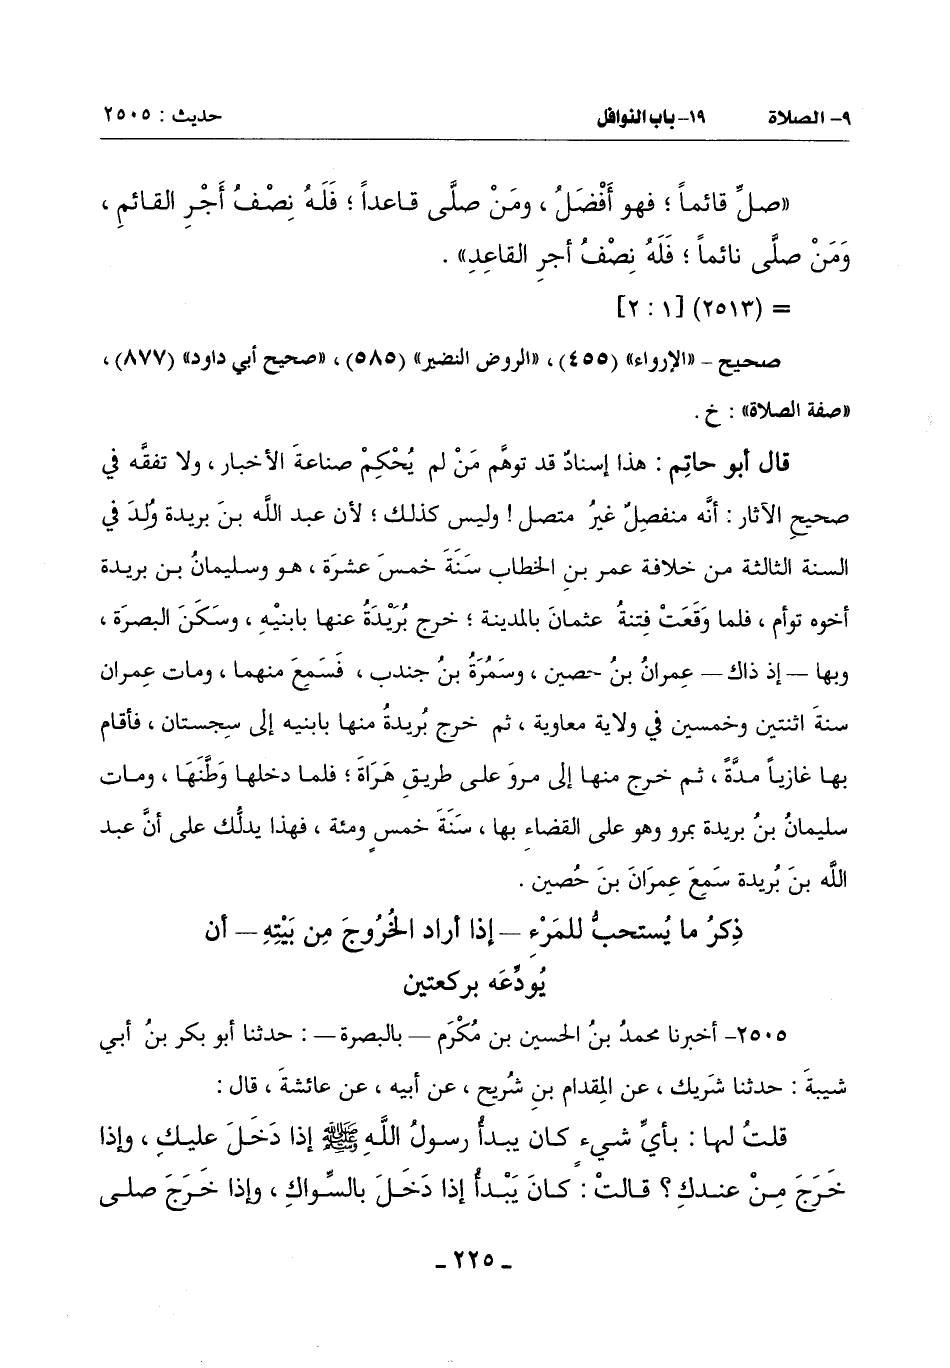 ٩- الصلاة ١٩- باب النوافل حديث : ٢٥٠٥
«صلِّ قائماً ؛ فهو أَفْضَلُ ، ومَنْ صلَّى قاعداً ؛ فَلَهُ نِصْفُ أَجْرِ القائمِ ،
وَمَنْ صلَّى نائماً ؛ فَلَهُ نِصْفُ أجرِ القاعِدِ» .
= (٢٥١٣) [١ : ٢]
صحيح – «الإرواء» (٤٥٥) ، «الروض النضير» (٥٨٥) ، «صحيح أبي داود» (٨٧٧) ،
«صفة الصلاة» : خ .
قال أبو حاتِم : هذا إسنادٌ قد توهَّم مَنْ لم يُحْكِمْ صناعةَ الأخبار ، ولا تفقَّه في
صحيحِ الآثار : أنَّه منفصِلٌ غيرُ متصل ! وليس كذلك ؛ لأن عبد اللَّه بنَ بريدة وُلِدَ في
السنة الثالثة من خلافة عمر بنِ الخطاب سَنَةَ خمسَ عشرَة ، هو وسليمانُ بن بريدة
أخوه توأم ، فلما وَقَعَتْ فِتنةُ عثمانَ بالمدينة ؛ خرج بُرَيْدَةُ عنها بابنيْهِ ، وسكَنَ البصرَة ،
وبها – إذ ذاك – عِمرانُ بنُ حصين ، وسَمُرَةُ بنُ جندب ، فَسَمِعَ منهما ، ومات عِمران
سنةَ اثنتين وخمسين في ولاية معاوية ، ثم خرج بُريدةُ منها بابنيه إلى سِجستان ، فأقام
بها غازياً مدَّةً ، ثم خرج منها إلى مروَ على طريقِ هَرَاةَ ؛ فلما دخلها وَطَّنَهَا ، ومات
سليمانُ بنُ بريدة بمرو وهو على القضاءِ بها ، سَنَةَ خمسٍ ومئة ، فهذا يدلُّك على أنَّ عبد
اللَّه بنَ بُريدة سَمِعَ عِمرَانَ بنَ حُصين .
ذِكرُ ما يُستحبُّ للمَرْءِ – إذا أراد الخُرُوجَ مِن بَيْتِهِ – أن
يُودِّعَه بركعتين
٢٥٠٥- أخبرنا محمدُ بنُ الحسين بن مُكْرَم – بالبصرة – : حدثنا أبو بكر بنُ أبي
شيبةَ : حدثنا شَريك ، عن المِقدام بنِ شُريح ، عن أبيه ، عن عائشةَ ، قال :
قلتُ لها : بأيِّ شيءٍ كان يبدأُ رسولُ اللَّهِ ﷺ إذا دَخَلَ عليكِ ، وإذا
خَرَجَ مِنْ عندكِ ؟ قالتْ : كانَ يَبْدأُ إذا دَخَلَ بالسِّواكِ ، وإذا خَرَجَ صلى
ـ ٢٢٥ ـ